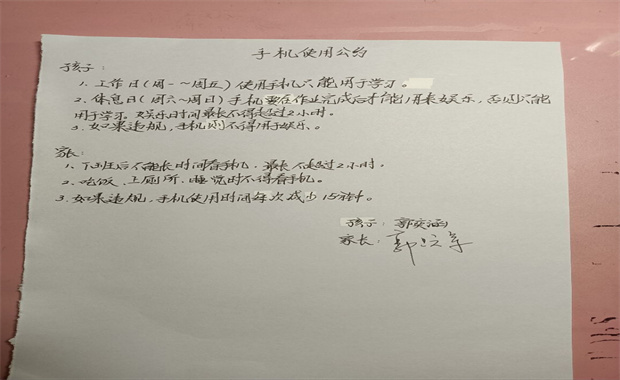 手机使用公约
孩子：
1、工作日(周一～周五)使用手机只能用于学习。
2、休息日(周六～周日)手机要在作业完成后才能用来娱乐，否则只能
用于学习。娱乐日时间最长不得超过2小时。
3、如果违规，手机则不得用于娱乐。
家长：
1、下班后不能长时间看手机，最长不超过2小时。
2、吃饭、上厕所、睡觉时不得看手机。
3、如果违规，手机使用时间每次减少15分钟。
孩子：郭奕涵
家长：郭